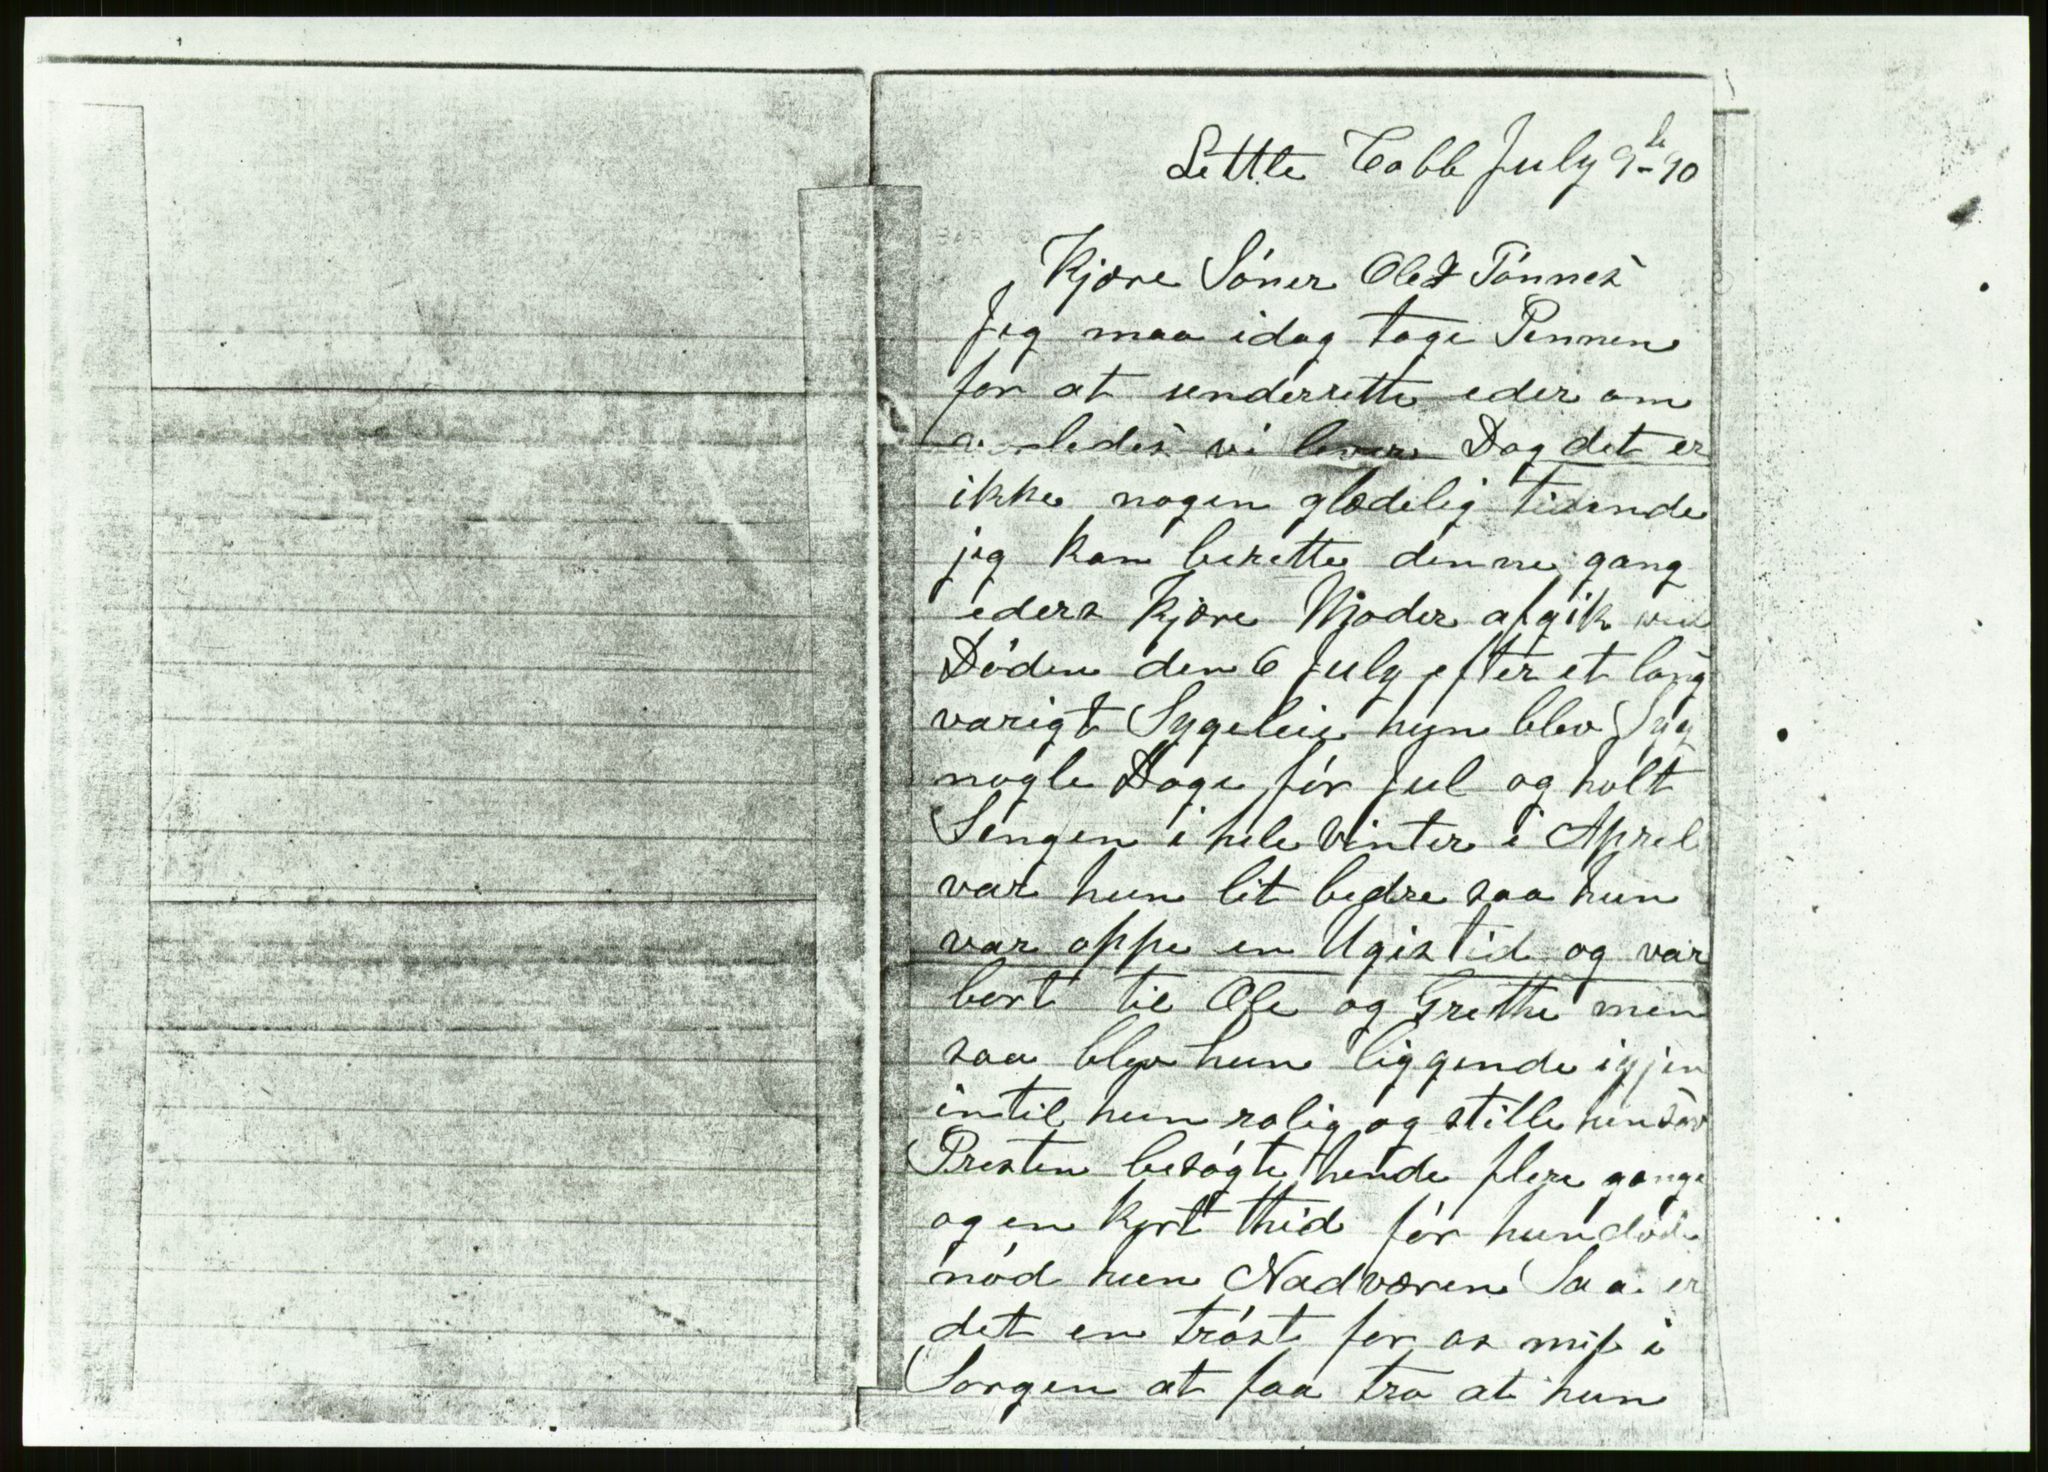 Little Cobb July 9de 90
Kjære Söner Ole & Tönnes
Jeg maa idag tage Pennen
for at underrette eder om
vorledes vi lever Dog det er
ikke nogen glædelig tidende
jeg kan berette denne gang
eders Kjære Moder afgik ved
Döden den 6 July efter et lang
varigt Sygeleie hun blev Syg
nogle Dage för Jul og holt
Sengen i hele Vinter i Aprel
var hun lit bedre saa hun
var oppe en Ugistid og var
bort til Ole og Grethe men
saa blev hun liggende igjen
intil hun rolig og stille hensov
Presten besögte hende flere gange
og en kort thid för hun döde
nöd hun Nadværen Saa er
det en tröst for os mit i
Sorgen at faa tro at hun